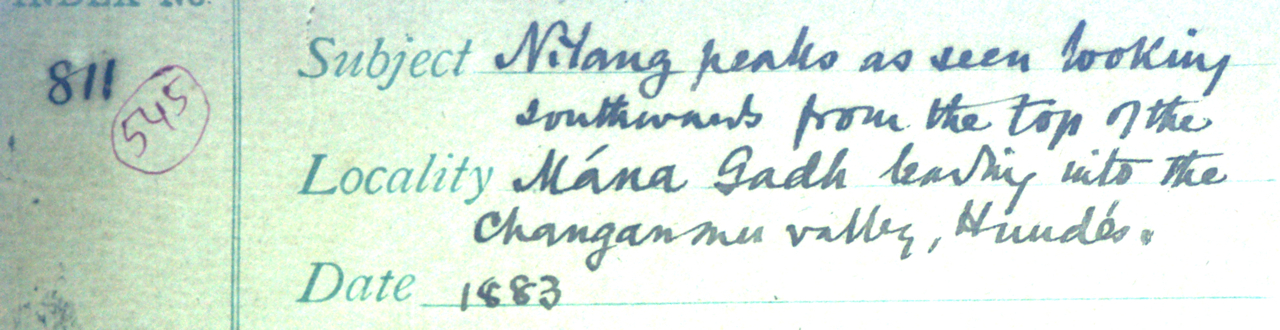 INDEX No
811
545
Subject Nilang peaks as seen looking
southwards from the top of the
Locality Mána Gadh leading into the
Changanmu valley, Hundés.
Date 1883